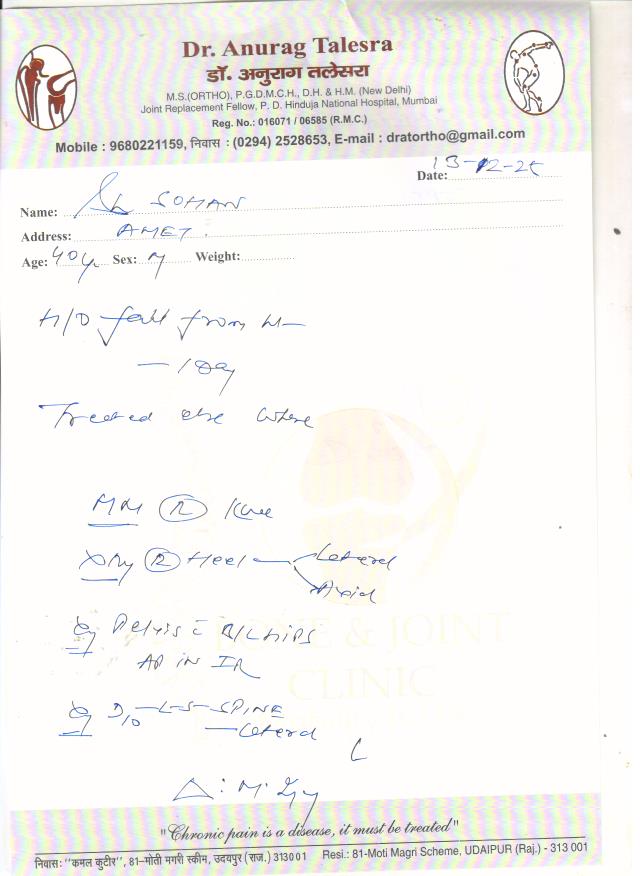 Dr. Anurag Talesra
डॉ. अनुराग तलेसरा
M.S.(ORTHO), P.G.D.M.C.H., D.H. & H.M. (New Delhi)
Joint Replacement Fellow, P. D. Hinduja National Hospital, Mumbai
Reg. No.: 016071 / 06585 (R.M.C.)
Mobile : 9680221159, निवास : (0294) 2528653, E-mail : dratortho@gmail.com
Date: 13-12-25
Name: Sh SOHAN
Address: AMET
Age: 40y Sex: M Weight:
H/O fall from
— 1 Day
Treated else where
R Knee
XRay R Heel — Lateral
Axial
Pelvis c B/L HIPS
AP IN IR
L-S-SPINE
— Lateral
BONE & JOINT
CLINIC
"Chronic pain is a disease, it must be treated"
निवास: "कमल कुटीर", 81–मोती मगरी स्कीम, उदयपुर (राज.) 313001 Resi.: 81-Moti Magri Scheme, UDAIPUR (Raj.) - 313 001